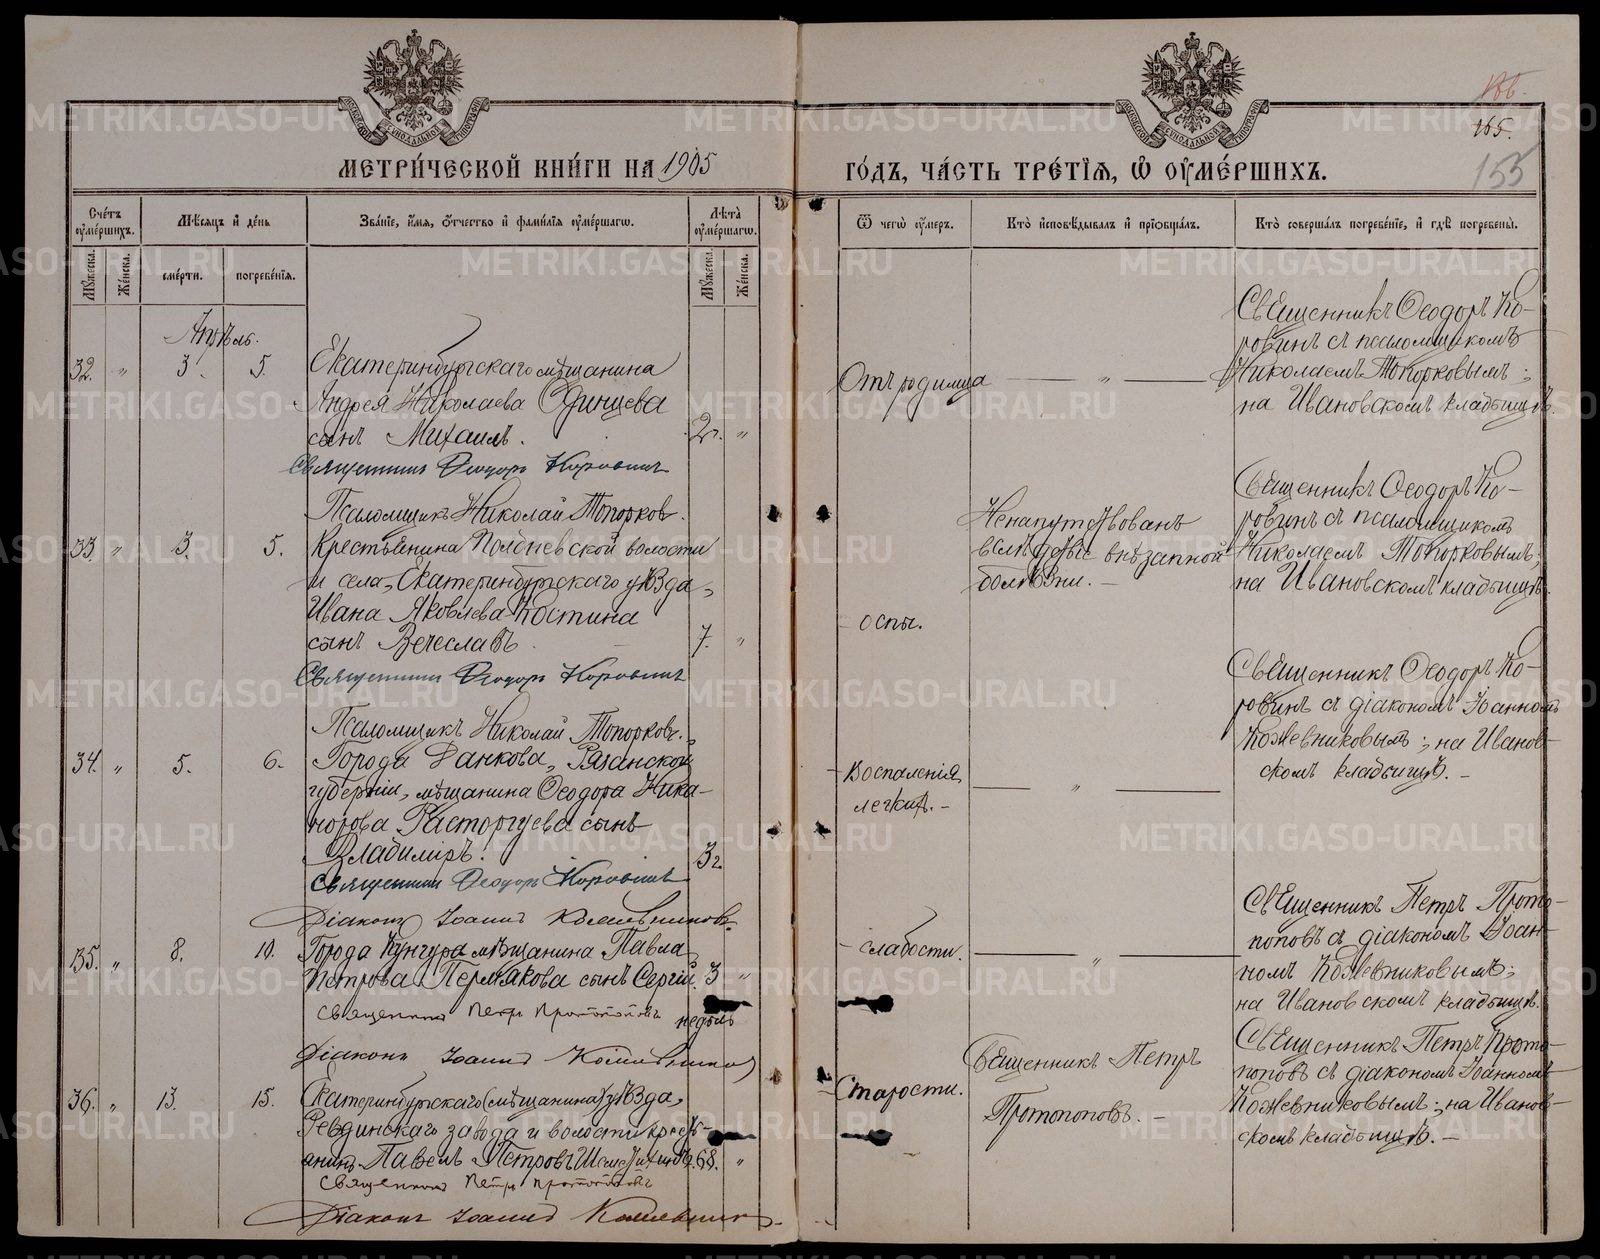 186.
165.
155
МЕТРИ́ЧЕСКОЙ КНИ́ГИ НА 1905
ГО́ДЪ, ЧА́СТЬ ТРЕ́ТІѦ, Ѡ҆ ОУ҆МЕ́РШИХЪ.
Сче́тъ оу҆ме́ршихъ.
Мѣ́сяцъ и҆ де́нь
Зва́нїе, и҆́мѧ, ѻ҆́тчество и҆ фами́лїѧ оу҆ме́ршагѡ.
Лѣ́та оу҆ме́ршагѡ.
Ѿ чегѡ̀ оу҆́меръ.
Кто̀ и҆сповѣ́дывалъ и҆ прїѡбща́лъ.
Кто̀ соверша́лъ погребе́нїе, и҆ гдѣ̀ погребены̀.
Мꙋ́жеска.
Же́нска.
сме́рти.
погребе́нїѧ.
Мꙋ́жеска.
Же́нска.
Апрѣль.
32. " 3. 5.
Екатеринбургскаго мѣщанина
Андрея Николаева Одинцева
сынъ Михаилъ. 2 г. "
Священникъ Ѳеодоръ Коровинъ
Псаломщикъ Николай Топорковъ.
Отъ родимца
— " —
Священникъ Ѳеодоръ Ко-
ровинъ съ псаломщикомъ
Николаемъ Топорковымъ;
на Ивановскомъ кладбищѣ.
33. " 3. 5.
Крестьянина Полдневской волости
и села, Екатеринбургскаго уѣзда,
Ивана Яковлева Костина
сынъ Вечеславъ. 7. "
Священникъ Ѳеодоръ Коровинъ
Псаломщикъ Николай Топорковъ.
- оспы.
Ненапутствованъ
вслѣдствіе внѣзапной
болѣзни. -
Священникъ Ѳеодоръ Ко-
ровинъ съ псаломщикомъ
Николаемъ Топорковымъ;
на Ивановскомъ кладбищѣ.
34. " 5. 6.
Города Данкова, Рязанской
губерніи, мѣщанина Ѳеодора Ника-
норова Расторгуева сынъ
Владиміръ. 3 г.
Священникъ Ѳеодоръ Коровинъ
Діаконъ Іоаннъ Кожевниковъ.
- воспаленія
легкихъ. -
— " —
Священникъ Ѳеодоръ Ко-
ровинъ съ діакономъ Іоанномъ
Кожевниковымъ; на Иванов-
скомъ кладбищѣ. -
35. " 8. 10.
Города Кунгура мѣщанина Павла
Петрова Пермякова сынъ Сергій. 3 "
недѣль
Священникъ Петръ Протопоповъ
Діаконъ Іоаннъ Кожевниковъ
- слабости.
— " —
Священникъ Петръ Прото-
поповъ съ діакономъ Іоан-
номъ Кожевниковымъ;
на Ивановскомъ кладбищѣ.
36. " 13. 15.
Екатеринбургскаго (мѣщанина) уѣзда,
Ревдинскаго завода и волости кресть-
янинъ Павелъ Петровъ 68. "
Священникъ Петръ Протопоповъ
Діаконъ Іоаннъ Кожевниковъ
Старости.
Священникъ Петръ
Протопоповъ. -
Священникъ Петръ Прото-
поповъ съ діакономъ Іоанномъ
Кожевниковымъ; на Иванов-
скомъ кладбищѣ. -
METRIKI.GASO-URAL.RU